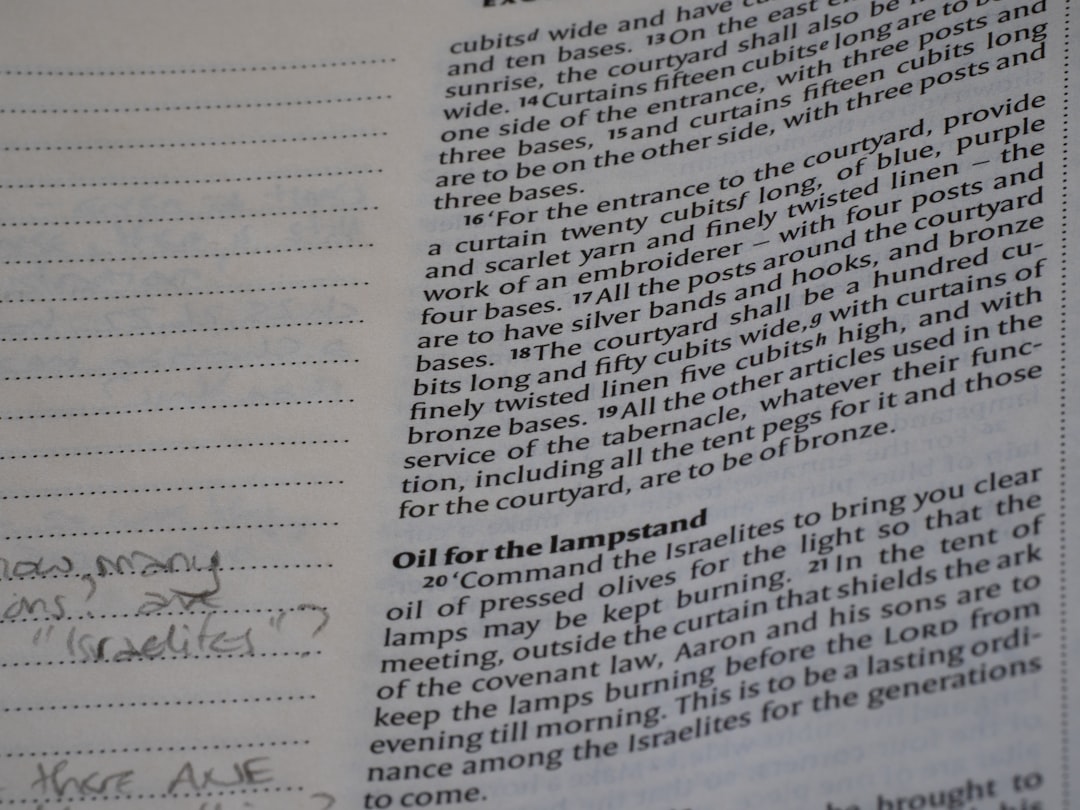 cubitsd wide and have
and ten bases. 13On the east
sunrise, the courtyard shall also be
wide. 14Curtains fifteen cubitse long are to
one side of the entrance, with three posts and
three bases, 15and curtains fifteen cubits long
are to be on the other side, with three posts and
three bases.
16‘For the entrance to the courtyard, provide
a curtain twenty cubitsf long, of blue, purple
and scarlet yarn and finely twisted linen – the
work of an embroiderer – with four posts and
four bases. 17All the posts around the courtyard
are to have silver bands and hooks, and bronze
bases. 18The courtyard shall be a hundred cu-
bits long and fifty cubits wide,g with curtains of
finely twisted linen five cubitsh high, and with
bronze bases. 19All the other articles used in the
service of the tabernacle, whatever their func-
tion, including all the tent pegs for it and those
for the courtyard, are to be of bronze.
Oil for the lampstand
20‘Command the Israelites to bring you clear
oil of pressed olives for the light so that the
lamps may be kept burning. 21In the tent of
meeting, outside the curtain that shields the ark
of the covenant law, Aaron and his sons are to
keep the lamps burning before the LORD from
evening till morning. This is to be a lasting ordi-
nance among the Israelites for the generations
to come.
brought to
many
are
"Israelites"?
there ANE